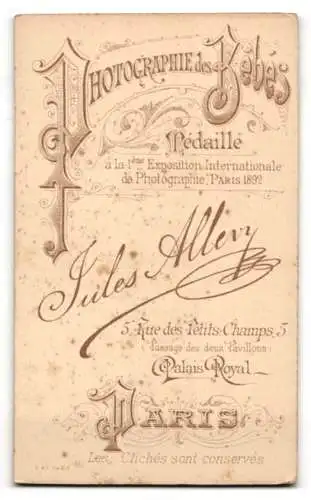 Photographie des Bébés
Médaillé
à la 1ère Exposition Internationale
de Photographie, Paris 1892
Jules Allévy
5, Rue des Petits-Champs, 5
Passage des deux Pavillons
Palais Royal
Paris
Les Clichés sont conservés